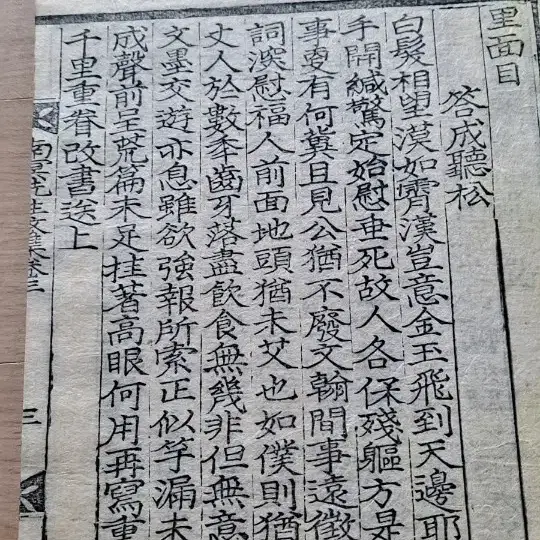 里面目
答成聽松
白髮相望漠如霄漢豈意金玉飛到天邊耶
手開緘驚定始慰垂死故人各保殘軀方是
事更有何冀且見公猶不廢文翰間事遠徵
詞深慰福人前面地頭猶未艾也如僕則猶
丈人於數季齒牙落盡飮食無幾非但無意
文墨交遊亦息雖欲強報所索正似竽漏未
成聲前呈荒篇未足挂著高眼何用再寫重
千里重眷改書送上
南冥先生文集卷三
三